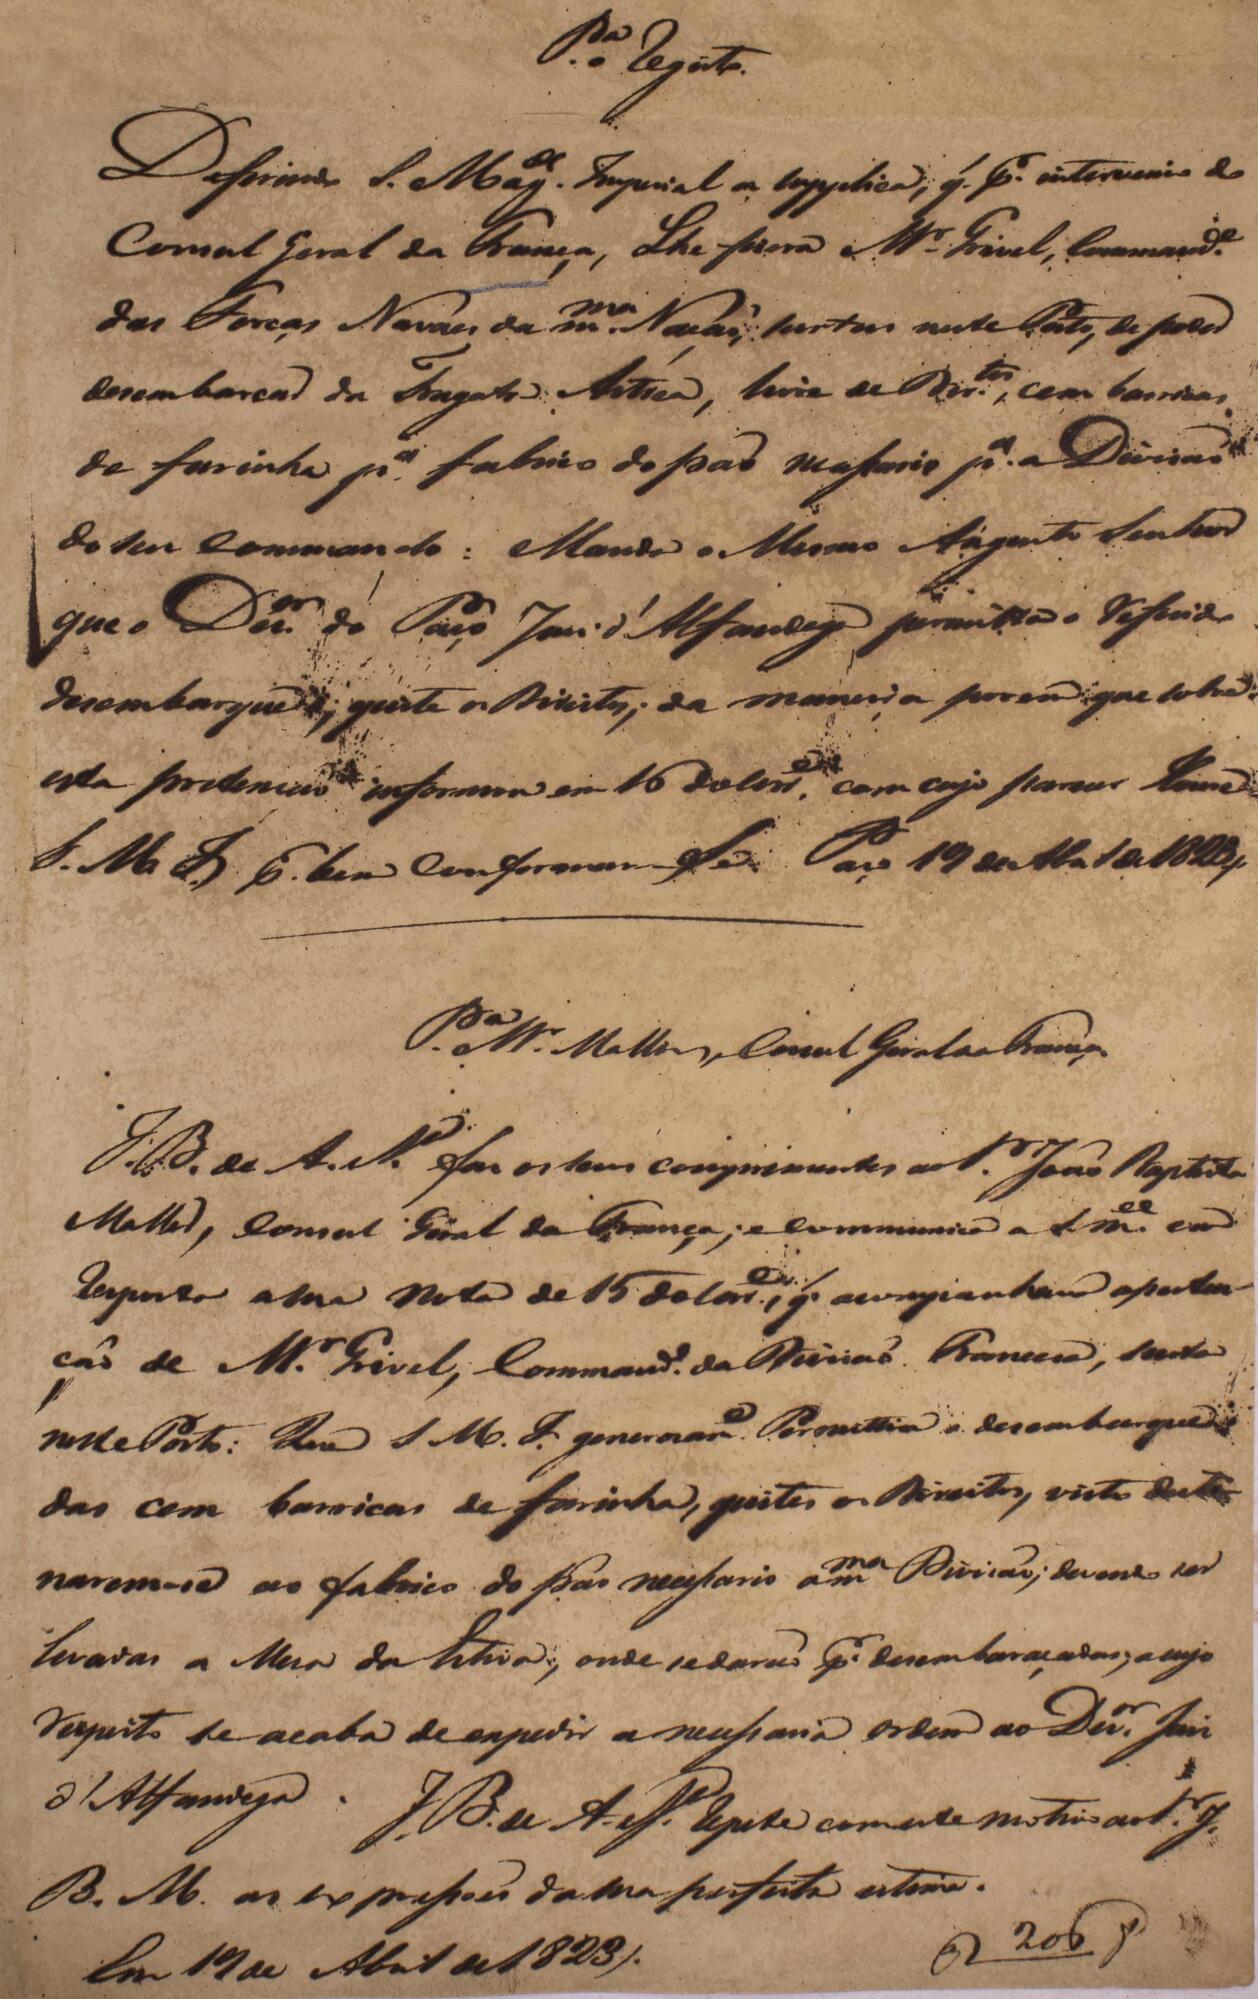 P.ª o Registo.
Defirindo S. Mag.de Imperial a supplica, q.' p.r intervenio do
Consul Geral da França, Lhe fizera Mr. Grivel, Command.e
das Forças Navaes da m.ma Nação, surtas neste Porto, de poder
desembarcar da Fragata Astréa, livre de Dir.tos, cem barricas
de farinha p.ª fabrico do pão necessario p.ª a Divisão
do seu Commando: Manda o Mesmo Augusto Senhor
que o Dez.or do Paço Juiz d'Alfandega permitta o referido
desembarque, quite os Direitos, da maneira porem que sobre
esta pretenção informou em 16 do corr.e, com cujo parecer Houve
S. M. I. p. bem conformar-se. Paço 19 de Abril de 1823.
P.ª Mr. Maller, Consul Geral da França
J. B. de A. P.e faz os seus comprimentos ao Sr. João Baptista
Maller, Consul Geral da França; e communica a S. m.ce em
resposta a sua Nota de 15 do corr.e, q.' acompanhava a perten-
ção de Mr. Grivel, Command.e da Divisão Franceza, surta
neste Porto: Que S. M. I. generosam.e Permittira o desembarque
das cem barricas de farinha, quites os Direitos, visto desti-
narem-se ao fabrico do pão necessario a m.ma Divisão; devendo ser
levadas a Mesa da Estiva, onde se darão p.r desembaraçadas; a cujo
respeito se acaba de expedir a necessaria ordem ao Dez.or Juiz
d'Alfandega. J. B. de A. P.e repete com este motivo ao Sr. J.
B. M. as expressoes da sua perfeita estima.
Em 19 de Abril de 1823.
206